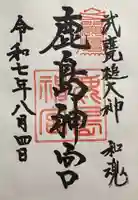 武甕槌大神 和魂
鹿島神宮
令和七年八月四日